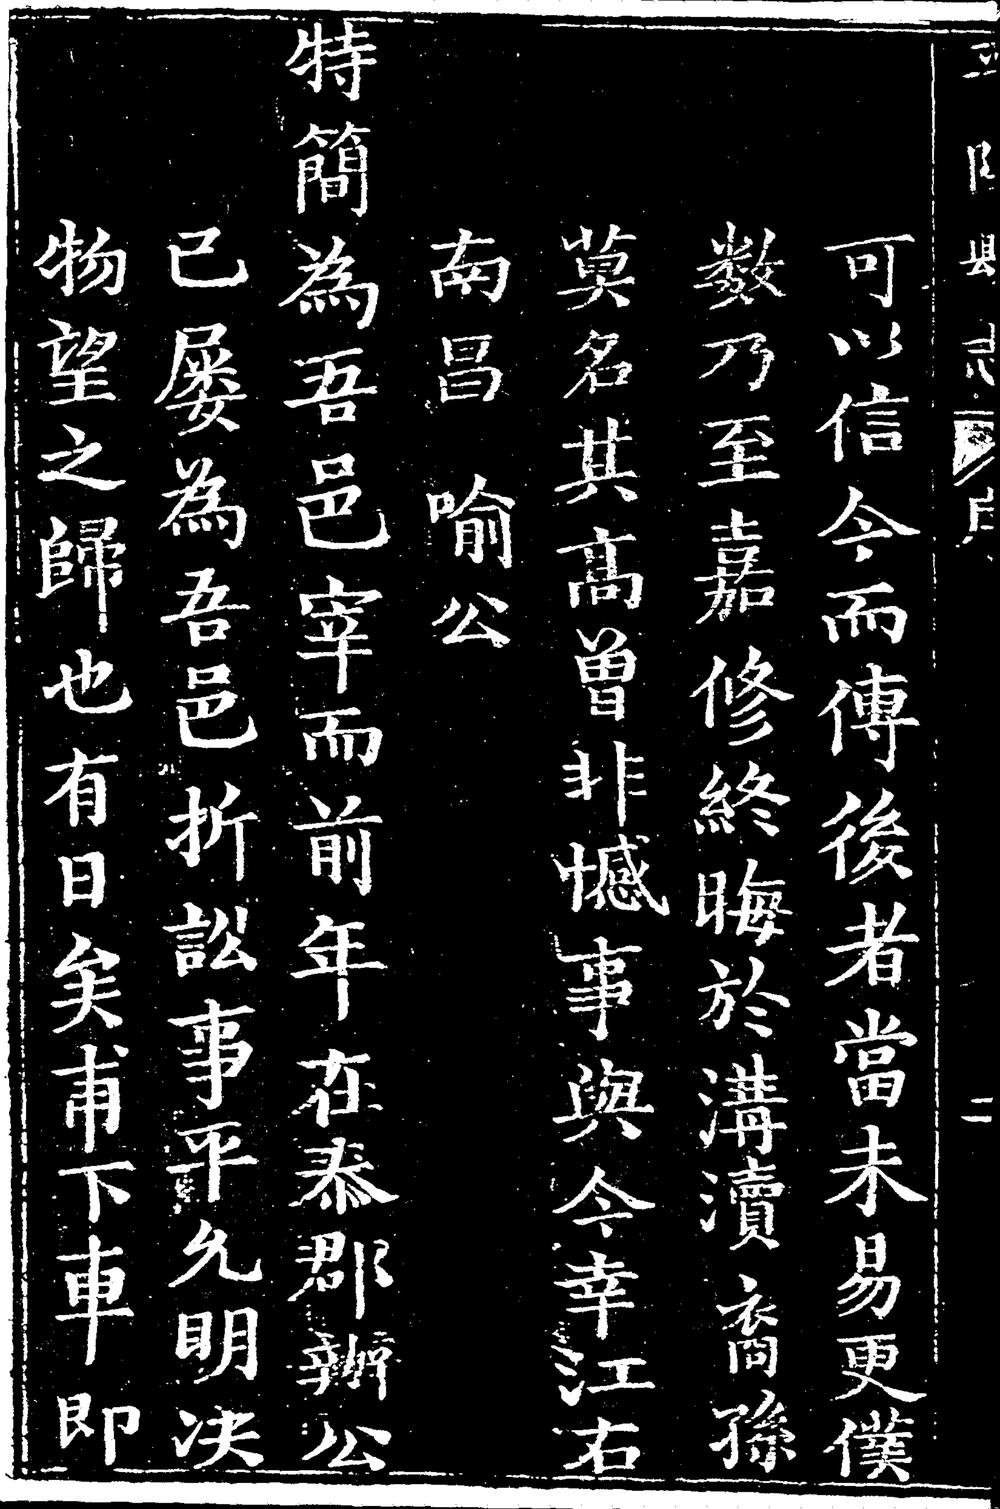 縣志
二
可以信今而傳後者當未易更僕
數乃至嘉修終晦於溝瀆裔孫
莫名其高曾非憾事與今幸江右
南昌 喻公
特簡為吾邑宰而前年在泰郡辦公
已屡為吾邑折訟事平允明决
物望之歸也有日矣甫下車即